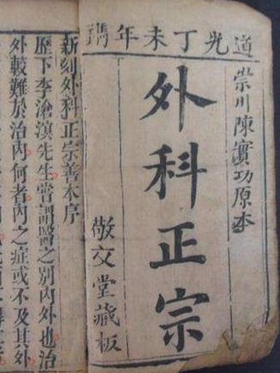 道光丁未年鐫
崇川陳實功原本
外科正宗
敬文堂藏板
新刻外科正宗善本序
歷下李滄溟先生嘗謂醫之別內外也治
外較難於治內何者內之症或不及其外